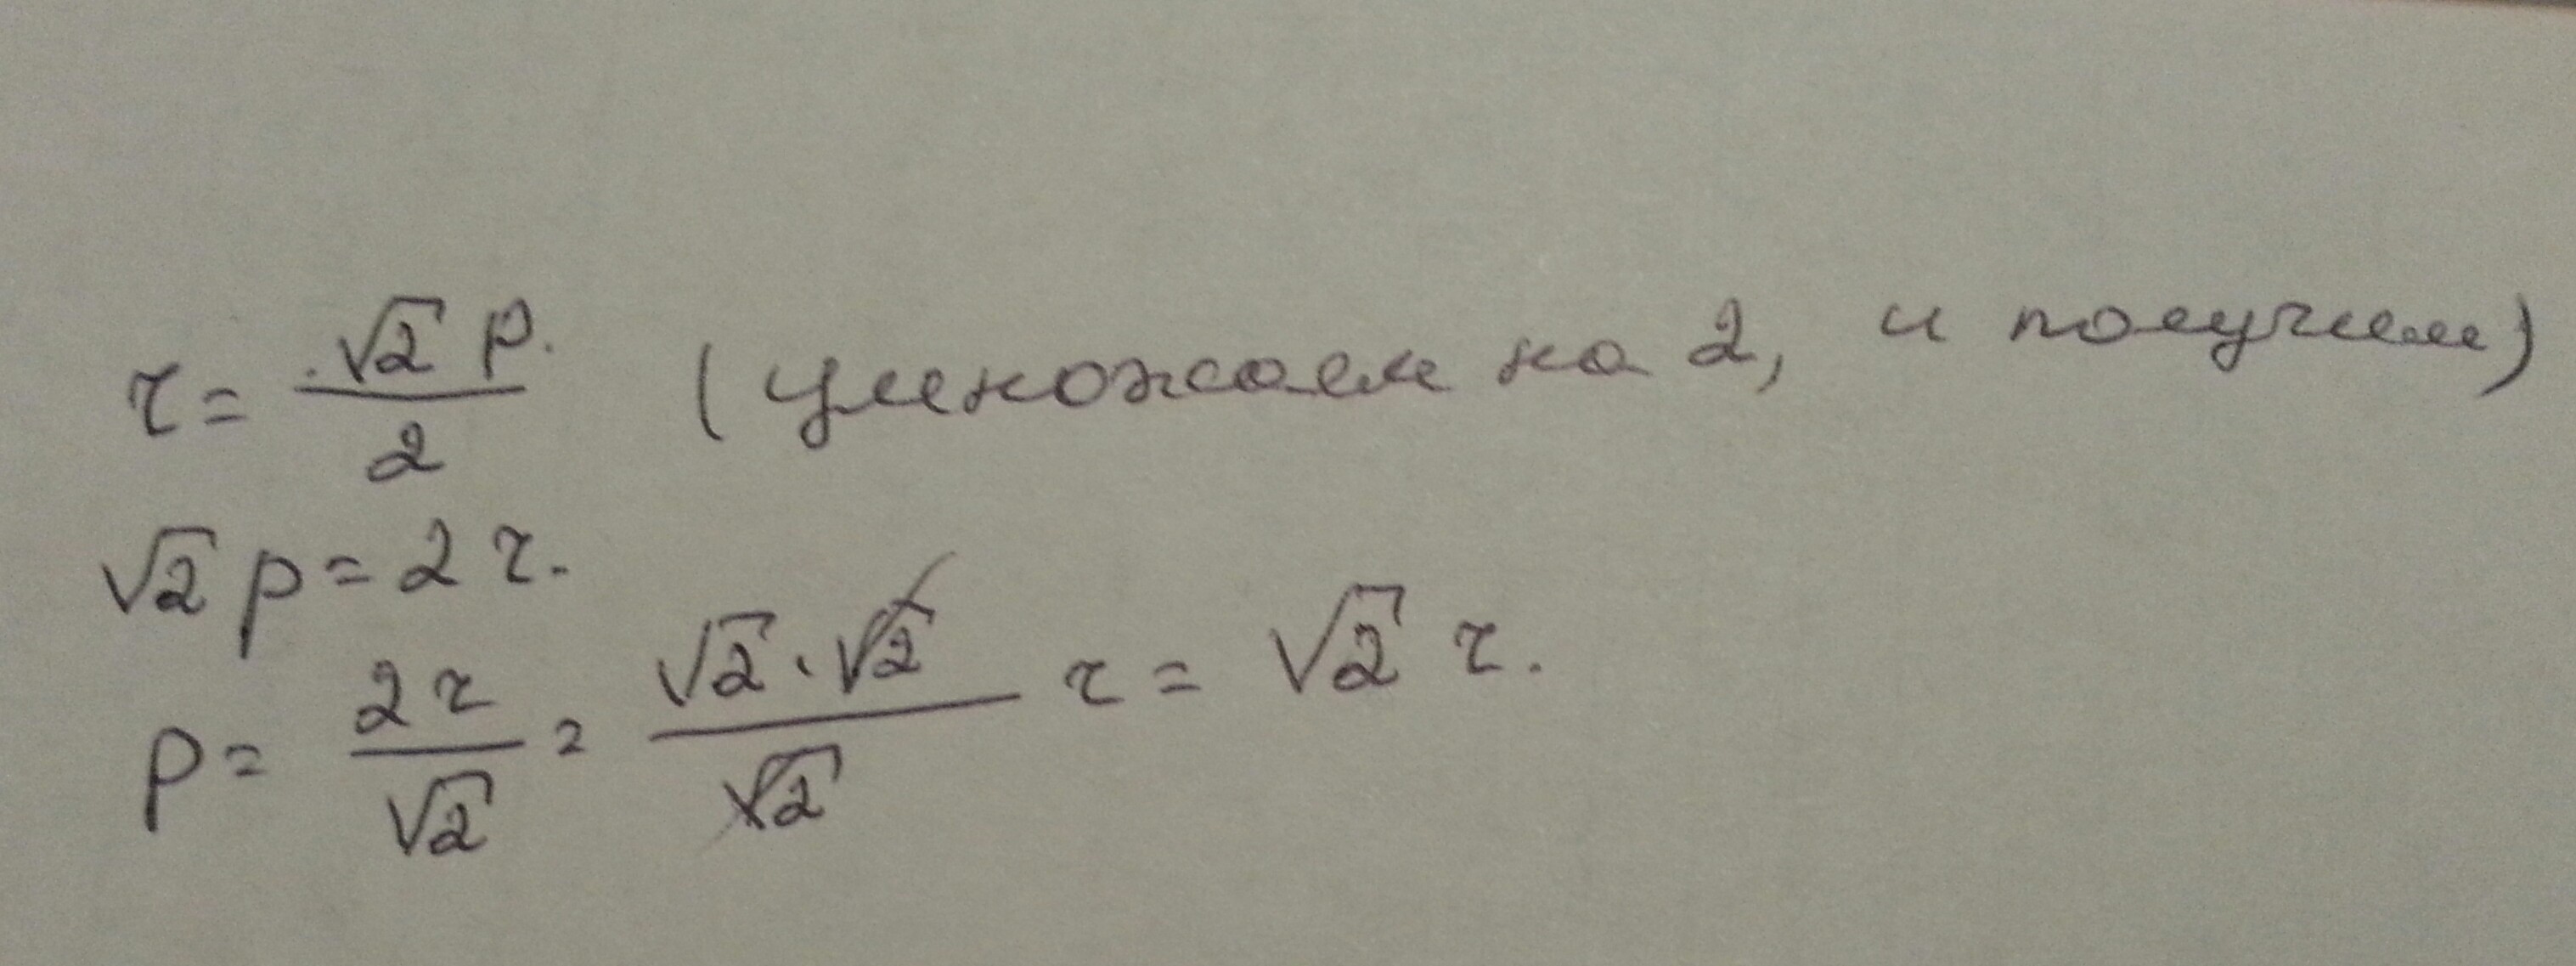 r = √2 p. / 2 (умножаем на 2, и получим)
√2 p = 2 r.
p = 2 r / √2 = √2 · √2 / √2 r = √2 r.